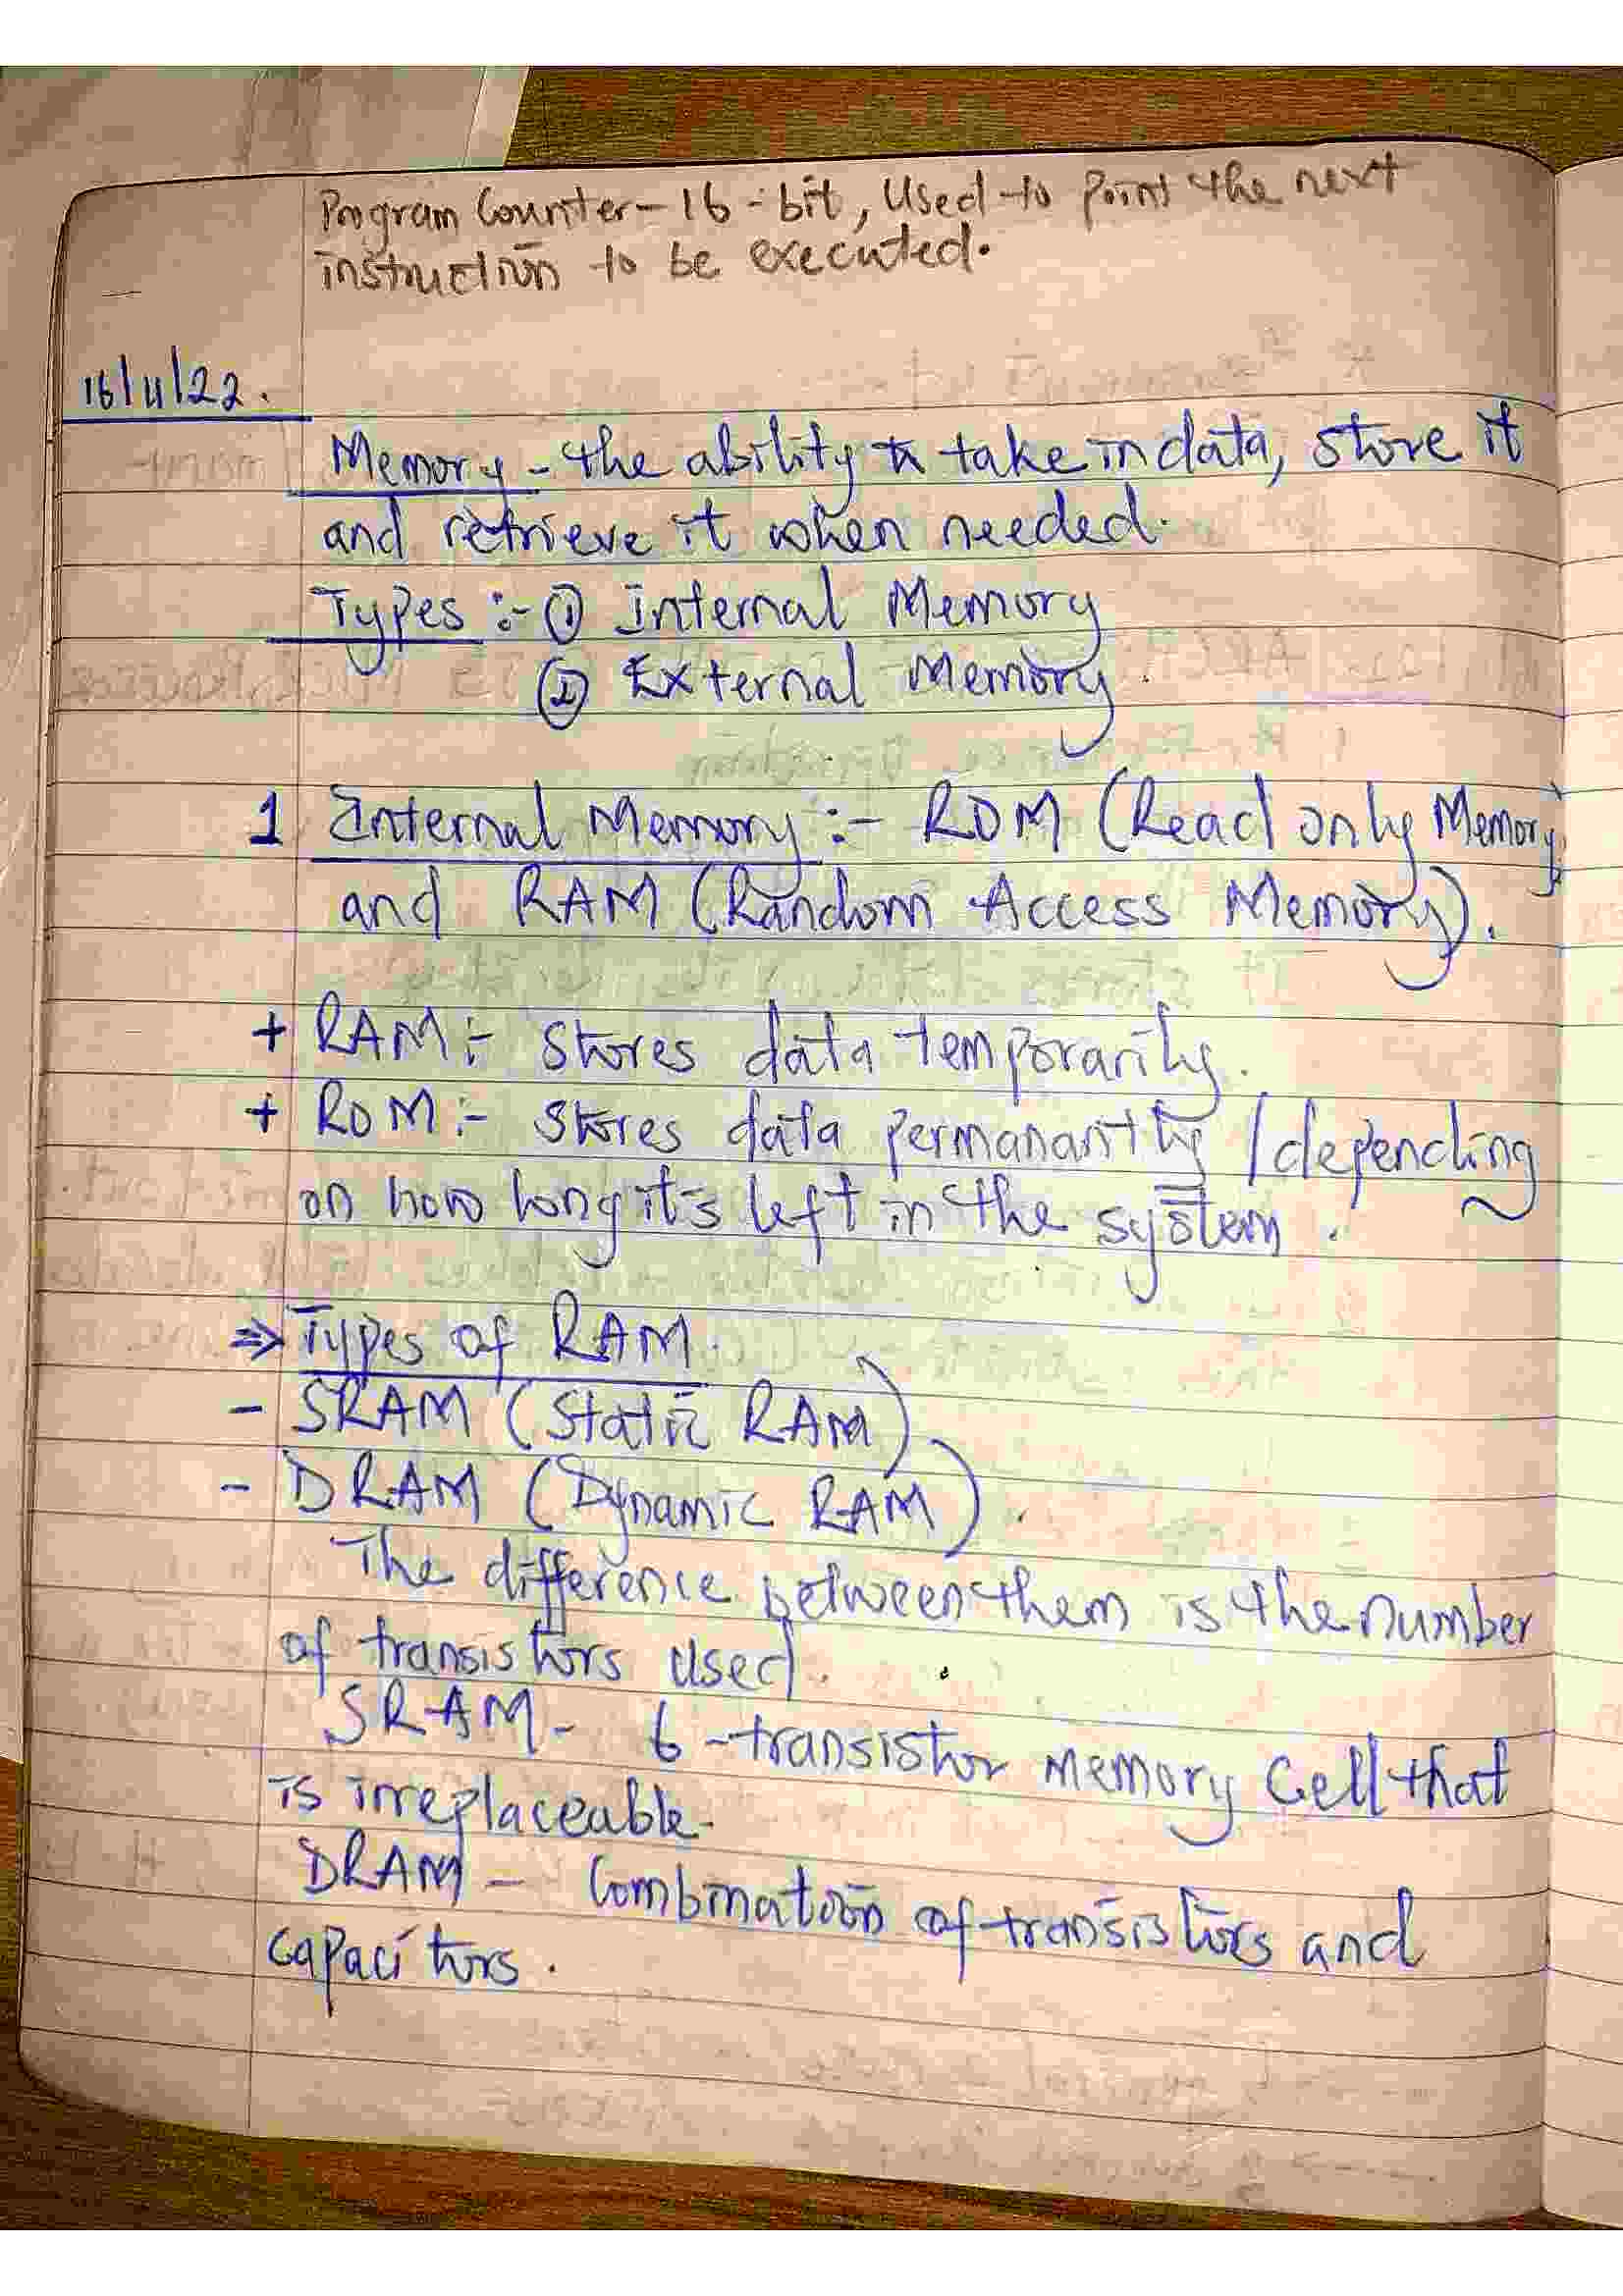 Program Counter - 16-bit, Used to Point the next
instruction to be executed.
16/11/22.
Memory - the ability to take in data, store it
and retrieve it when needed.
Types :- ① Internal Memory
② External Memory.
1 Internal Memory :- ROM (Read only Memory)
and RAM (Random Access Memory).
+ RAM :- Stores data temporarily.
+ ROM :- Stores data permanantly / depending
on how long it's left in the system.
⇒ Types of RAM.
- SRAM (Static RAM)
- DRAM (Dynamic RAM).
The difference between them is the number
of transistors used.
SRAM - 6-transistor memory Cell that
is irreplaceable.
DRAM - Combination of transistors and
capacitors.